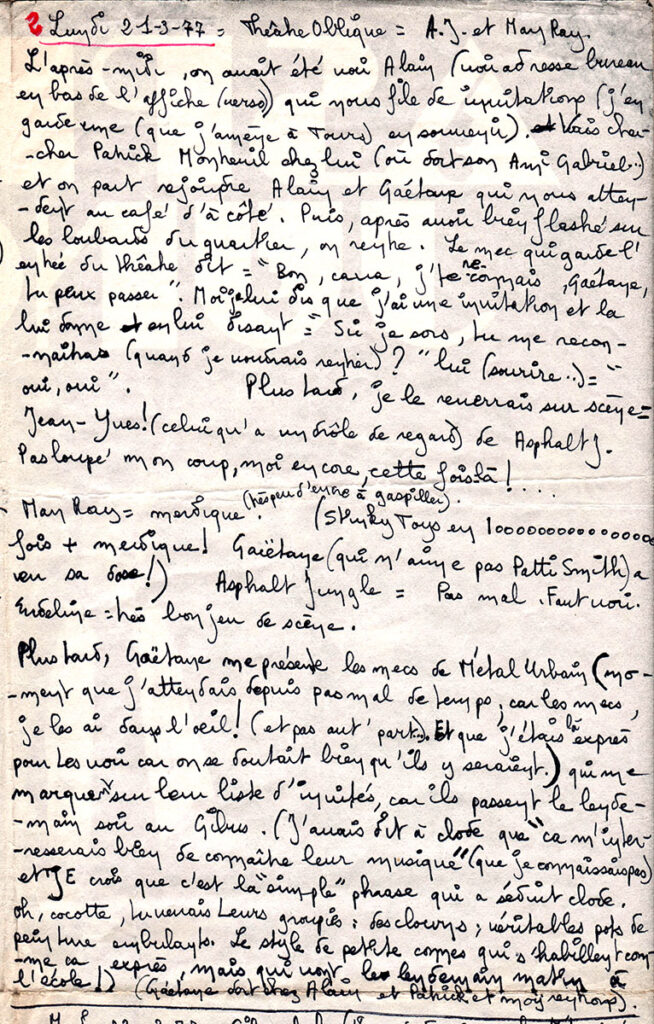 2 Lundi 21-3-77 = Théâtre Oblique = A.J. et Man Ray.
L'après-midi, on avait été voir Alain (voir adresse bureau
en bas de l'affiche (verso)) qui nous file de invitations (j'en
garde une (que j'amène à Tours) en souvenir). Vais cher-
-cher Patrick chez lui (où dort son Ami Gabriel..)
et on part rejoindre Alain et Gaétane qui nous atten-
-dent au café d'à côté. Puis, après avoir bien flashé sur
les loubards du quartier, on rentre. Le mec qui garde l'
entrée du théâtre dit = "Bon, ca va, j'te re-connais, Gaétane,
tu peux passer". Moi je lui dis que j'ai une invitation et la
lui donne en lui disant = "Si je sors, tu me recon-
-naitras (quand je voudrais rentrer)?" lui (sourire..) = "
oui, oui". Plus tard, je le reverrais sur scène =
Jean-Yves! (celui qu'a un drôle de regard) de Asphalt J.
Pas loupé mon coup, moi encore, cette fois là!....
Man Ray = merdique. (très peu d'encre à gaspiller). (Stinky Toys en 10000000000000000
fois + merdique! Gaëtane (qui n'aime pas Patti Smith) a
eu sa dose!) Asphalt Jungle = Pas mal. Faut voir.
= très bon jeu de scène.
Plus tard, Gaëtane me présente les mecs de Métal Urbain (mo-
-ment que j'attendais depuis pas mal de temps, car les mecs,
je les ai dans l'oeil! (et pas aut' part..). Et que j'étais là exprès
pour Les voir car on se doutait bien qu'ils y seraient.) qui me
marquent sur leur liste d'invités, car ils passent le lende-
-main soir au Gibus. (J'avais dit à clode que "ca m'inter-
-resserais bien de connaître leur musique" (que je connaissais pas)
et JE crois que c'est la "simple" phrase qui a séduit clode.
oh, cocotte, tu verrais Leurs groupies: des clowns; véritables pots de
peinture ambulants. Le style de petite connes qui s'habillent com-
-me ca exprès, mais qui vont le lendemain matin à
l'école!) (Gaétane dort chez Alain et Patrick et moi rentrons).